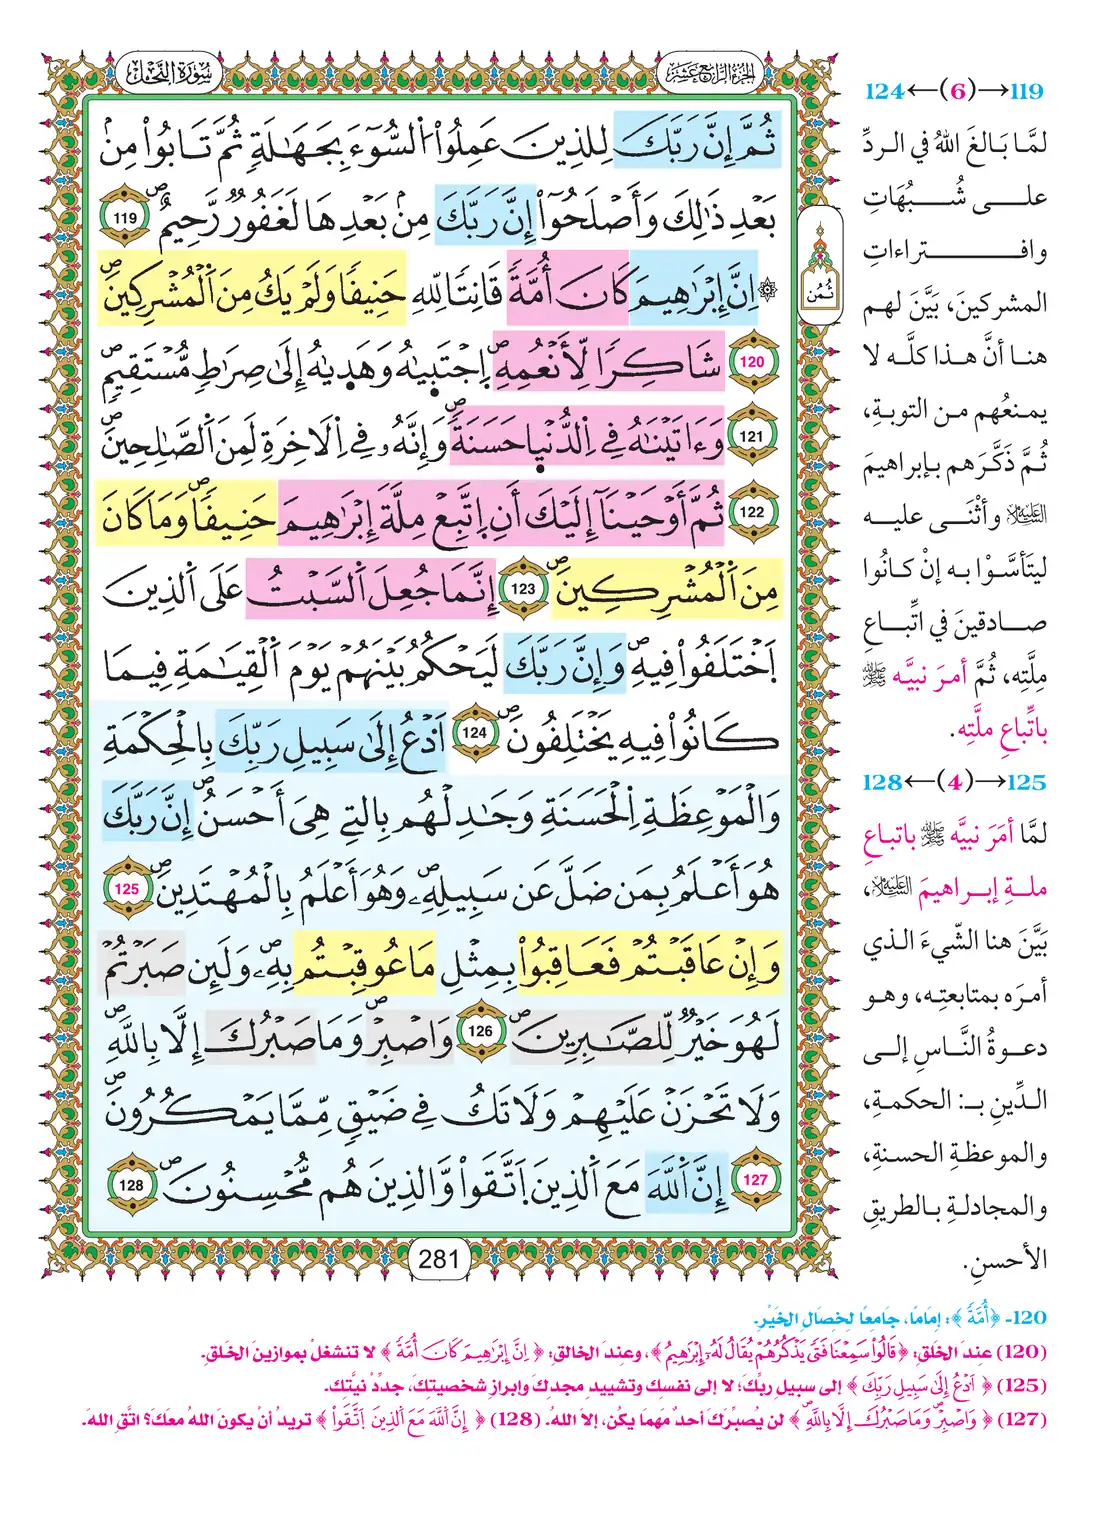 سُورَةُ النَّحْلِ
الجُزْءُ الرَّابِعَ عَشَرَ
ثُمَّ إِنَّ رَبَّكَ لِلذِينَ عَمِلُواْ اُلسُّوٓءَ بِجَهَٰلَةٖ ثُمَّ تَابُواْ مِنۢ
بَعْدِ ذَٰلِكَ وَأَصْلَحُوٓاْ إِنَّ رَبَّكَ مِنۢ بَعْدِهَا لَغَفُورٞ رَّحِيمٌۖ 119
۞ اِنَّ إِبْرَٰهِيمَ كَانَ أُمَّةٗ قَانِتاٗ لِّلهِ حَنِيفاٗ وَلَمْ يَكُ مِنَ اَلْمُشْرِكِينَۖ
120 شَاكِراٗ لِّأَنْعُمِهِۖ اِجْتَبَيٰهُ وَهَدَيٰهُ إِلَىٰ صِرَٰطٖ مُّسْتَقِيمٖۖ
121 وَءَاتَيْنَٰهُ فِے اِلدُّنْيَا حَسَنَةٗۖ وَإِنَّهُۥ فِے اِلَاخِرَةِ لَمِنَ اَلصَّٰلِحِينَۖ
122 ثُمَّ أَوْحَيْنَآ إِلَيْكَ أَنِ اِتَّبِعْ مِلَّةَ إِبْرَٰهِيمَ حَنِيفاٗۖ وَمَا كَانَ
مِنَ اَلْمُشْرِكِينَۖ 123 إِنَّمَا جُعِلَ اَلسَّبْتُ عَلَى اَلذِينَ
اَخْتَلَفُواْ فِيهِۖ وَإِنَّ رَبَّكَ لَيَحْكُمُ بَيْنَهُمْ يَوْمَ اَلْقِيَٰمَةِ فِيمَا
كَانُواْ فِيهِ يَخْتَلِفُونَۖ 124 اَدْعُ إِلَىٰ سَبِيلِ رَبِّكَ بِالْحِكْمَةِ
وَالْمَوْعِظَةِ اِلْحَسَنَةِ وَجَٰدِلْهُم بِالتِے هِىَ أَحْسَنُۖ إِنَّ رَبَّكَ
هُوَ أَعْلَمُ بِمَن ضَلَّ عَن سَبِيلِهِۦۖ وَهُوَ أَعْلَمُ بِالْمُهْتَدِينَۖ 125
وَإِنْ عَاقَبْتُمْ فَعَاقِبُواْ بِمِثْلِ مَا عُوقِبْتُم بِهِۦۖ وَلَئِن صَبَرْتُمْ
لَهُوَ خَيْرٞ لِّلصَّٰبِرِينَۖ 126 وَاصْبِرْۖ وَمَا صَبْرُكَ إِلَّا بِاللَّهِۖ
وَلَا تَحْزَنْ عَلَيْهِمْ وَلَا تَكُ فِے ضَيْقٖ مِّمَّا يَمْكُرُونَۖ
127 إِنَّ اَللَّهَ مَعَ اَلذِينَ اَتَّقَواْ وَّالذِينَ هُم مُّحْسِنُونَۖ 128
ثُمُن
281
119→(6)←124
لمَّا بَالغَ اللهُ في الردِّ
على شُبُهَاتِ
وافتراءاتِ
المشركينَ، بَيَّنَ لهم
هنا أنَّ هذا كلَّه لا
يمنعُهم من التوبةِ،
ثُمَّ ذَكَّرَهم بإبراهيمَ
عليه السلام وأثْنَى عليه
ليتَأسَّوْا به إنْ كانُوا
صادقينَ في اتِّباعِ
مِلَّتِه، ثُمَّ أمرَ نبيَّه ﷺ
باتِّباعِ ملَّتِه.
125→(4)←128
لمَّا أمَرَ نبيَّه ﷺ باتباعِ
ملةِ إبراهيمَ عليه السلام،
بَيَّنَ هنا الشّيءَ الذي
أمرَه بمتابعتِه، وهو
دعوةُ النَّاسِ إلى
الدِّينِ بـ: الحكمةِ،
والموعظةِ الحسنةِ،
والمجادلةِ بالطريقِ
الأحسنِ.
120- ﴿أُمَّةً﴾: إمَامًا، جَامِعًا لخِصَالِ الخَيْرِ.
(120) عِندَ الخَلقِ: ﴿قَالُواْ سَمِعْنَا فَتًى يَذْكُرُهُمْ يُقَالُ لَهُۥٓ إِبْرَٰهِيمُ﴾، وعِندَ الخالقِ: ﴿اِنَّ إِبْرَٰهِيمَ كَانَ أُمَّةً﴾ لا تنشغلْ بموازينِ الخَلقِ.
(125) ﴿اَدْعُ إِلَىٰ سَبِيلِ رَبِّكَ﴾ إلى سبيلِ ربِّكَ؛ لا إلى نفسِك وتشييد مجدِكَ وإبرازِ شخصيتِكَ، جدِّدْ نيَّتِكَ.
(127) ﴿وَاصْبِرْۖ وَمَا صَبْرُكَ إِلَّا بِاللَّهِ﴾ لن يُصبِّرَكَ أحدٌ مَهمَا يكُن، إلا اللهُ. (128) ﴿إِنَّ اَللَّهَ مَعَ اَلذِينَ اَتَّقَواْ﴾ تريدُ أنْ يكونَ اللهُ معكَ؟ اتَّقِ اللهَ.